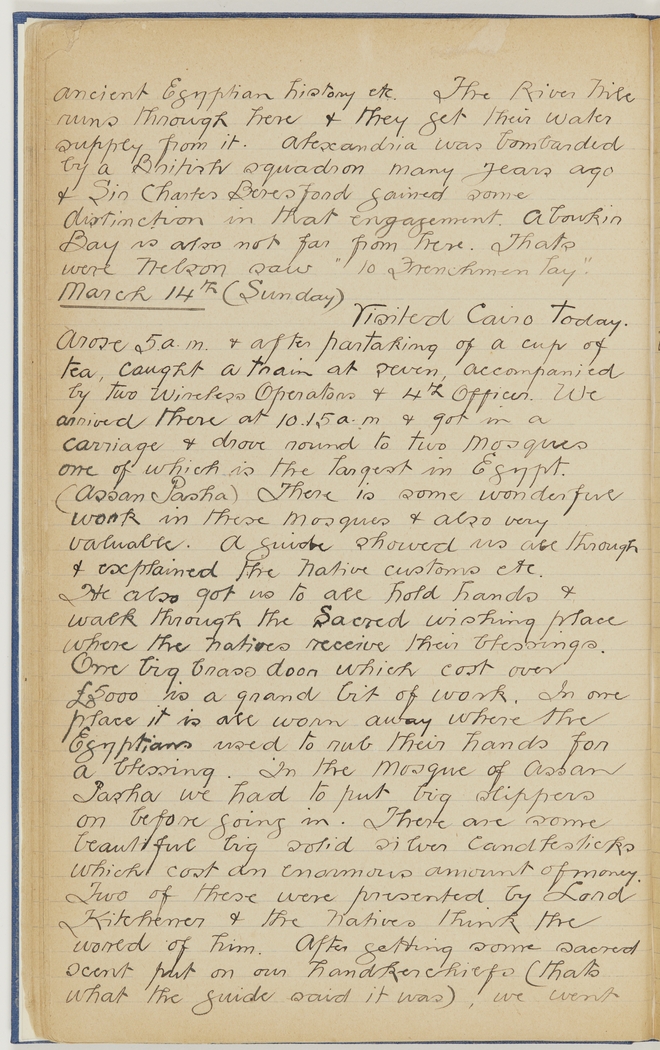 ancient Egyptian history etc. The River Nile
runs through here & they get their water
supply from it. Alexandria was bombarded
by a British squadron many years ago
& Sir Charles Beresford gained some
distinction in that engagement. Aboukir
Bay is also not far from here. Thats
were Nelson saw "10 Frenchmen lay".
March 14th (Sunday)
Visited Cairo today.
Arose 5.a.m. & after partaking of a cup of
tea, caught a train at seven, accompanied
by two Wireless Operators & 4th Officer. We
arrived there at 10.15 a.m & got in a
carriage & drove round to two Mosques
one of which is the largest in Egypt.
(Assan Pasha) There is some wonderful
work in these Mosques & also very
valuable. A guide showed us all through
& explained the native customs etc.
He also got us to all hold hands &
walk through the Sacred wishing place
where the natives receive their blessings.
One big brass door which cost over
£5000 is a grand bit of work. In one
place it is all worn away where the
Egyptians used to rub their hands for
a blessing. In the Mosque of Assan
Pasha we had to put big slippers
on before going in. There are some
beautiful big solid silver candlesticks
which cost an enormous amount of money.
Two of these were presented by Lord
Kitchener & the natives think the
world of him. After getting some sacred
scent put on our handkerchiefs (thats
what the guide said it was), we went